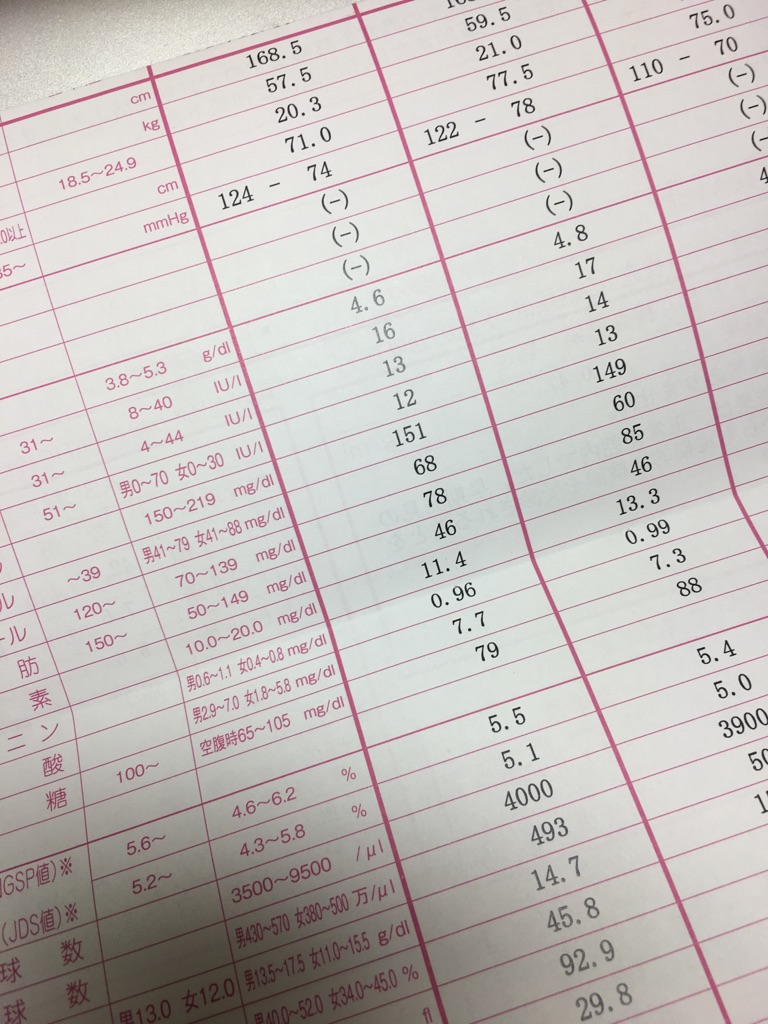 cm 168.5
kg 57.5 59.5
18.5～24.9 20.3 21.0
0以上 cm 71.0 77.5 75.0
35～ mmHg 124 - 74 122 - 78 110 - 70
(-) (-) (-)
(-) (-) (-)
(-) (-) (-)
3.8～5.3 g/dl 4.6 4.8 4
31～ 8～40 IU/l 16 17
31～ 4～44 IU/l 13 14
51～ 男0～70 女0～30 IU/l 12 13
150～219 mg/dl 151 149
ル ～39 男41～79 女41～88 mg/dl 68 60
ール 120～ 70～139 mg/dl 78 85
肪 150～ 50～149 mg/dl 46 46
素 10.0～20.0 mg/dl 11.4 13.3
ニン 男0.6～1.1 女0.4～0.8 mg/dl 0.96 0.99
酸 男2.9～7.0 女1.8～5.8 mg/dl 7.7 7.3
糖 100～ 空腹時65～105 mg/dl 79 88
GSP値)※ 5.6～ 4.6～6.2 % 5.5 5.4
(JDS値)※ 5.2～ 4.3～5.8 % 5.1 5.0
球数 3500～9500 /μl 4000 3900
球数 男430～570 女380～500 万/μl 493 50
男13.0 女12.0 男13.5～17.5 女11.0～15.5 g/dl 14.7
男40.0～52.0 女34.0～45.0 % 45.8
fl 92.9
29.8